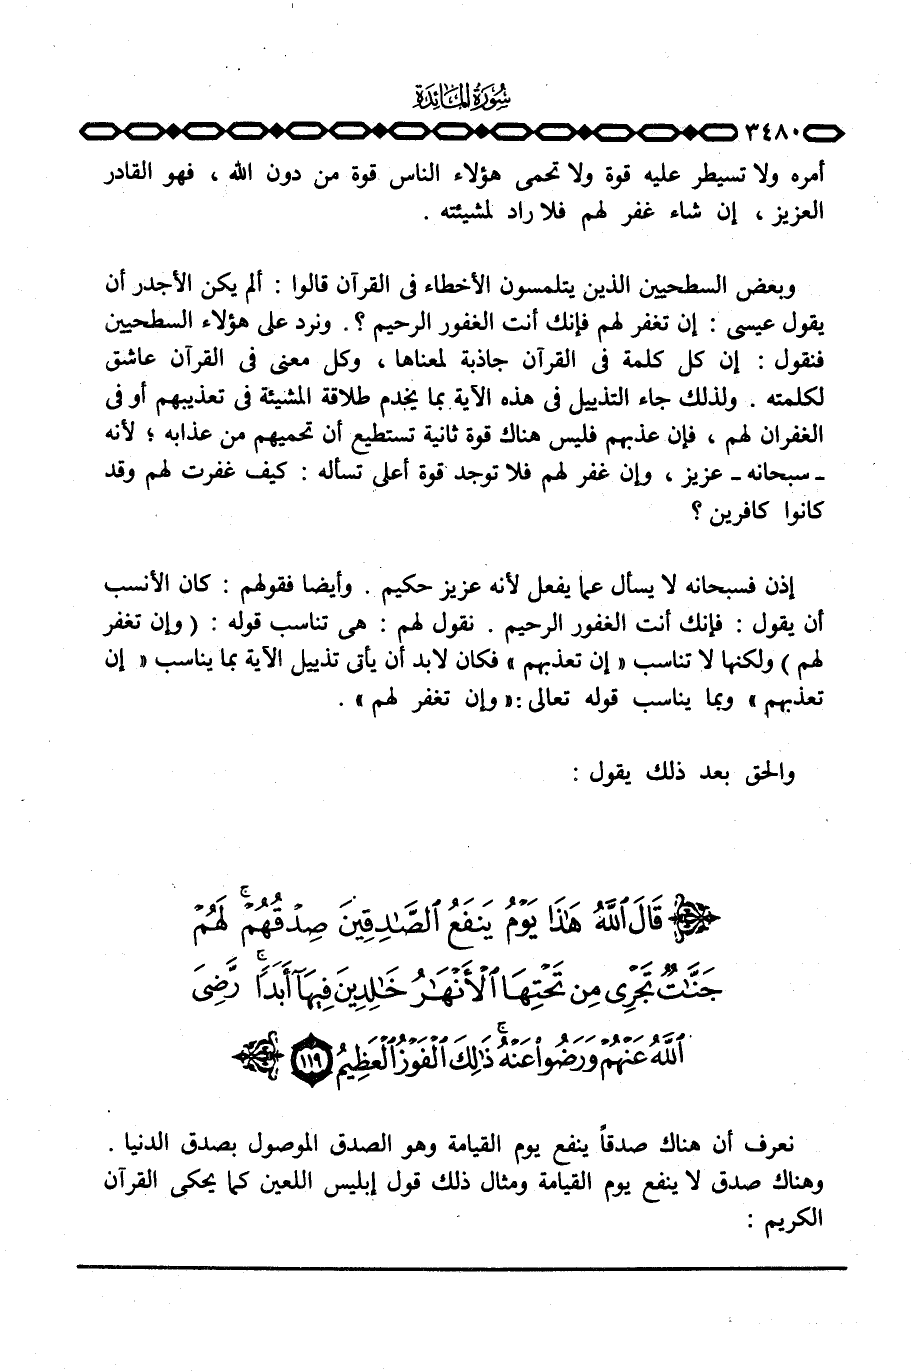 سُورَةُ المَائِدَةِ
٣٤٨٠
أمره ولا تسيطر عليه قوة ولا تحمى هؤلاء الناس قوة من دون الله ، فهو القادر
العزيز ، إن شاء غفر لهم فلا راد لمشيئته .
وبعض السطحيين الذين يتلمسون الأخطاء فى القرآن قالوا : ألم يكن الأجدر أن
يقول عيسى : إن تغفر لهم فإنك أنت الغفور الرحيم ؟. ونرد على هؤلاء السطحيين
فنقول : إن كل كلمة فى القرآن جاذبة لمعناها ، وكل معنى فى القرآن عاشق
لكلمته . ولذلك جاء التذييل فى هذه الآية بما يخدم طلاقة المشيئة فى تعذيبهم أو فى
الغفران لهم ، فإن عذبهم فليس هناك قوة ثانية تستطيع أن تحميهم من عذابه ؛ لأنه
ـ سبحانه ـ عزيز ، وإن غفر لهم فلا توجد قوة أعلى تسأله : كيف غفرت لهم وقد
كانوا كافرين ؟
إذن فسبحانه لا يسأل عما يفعل لأنه عزيز حكيم . وأيضا فقولهم : كان الأنسب
أن يقول : فإنك أنت الغفور الرحيم . نقول لهم : هى تناسب قوله : ( وإن تغفر
لهم ) ولكنها لا تناسب « إن تعذبهم » فكان لابد أن يأتى تذييل الآية بما يناسب « إن
تعذبهم » وبما يناسب قوله تعالى :« وإن تغفر لهم » .
والحق بعد ذلك يقول :
قَالَ ٱللَّهُ هَٰذَا يَوْمُ يَنفَعُ ٱلصَّٰدِقِينَ صِدْقُهُمْ ۚ لَهُمْ
جَنَّٰتٌ تَجْرِى مِن تَحْتِهَا ٱلْأَنْهَٰرُ خَٰلِدِينَ فِيهَآ أَبَدًا ۚ رَّضِىَ
ٱللَّهُ عَنْهُمْ وَرَضُوا۟ عَنْهُ ۚ ذَٰلِكَ ٱلْفَوْزُ ٱلْعَظِيمُ ١١٩
نعرف أن هناك صدقاً ينفع يوم القيامة وهو الصدق الموصول بصدق الدنيا .
وهناك صدق لا ينفع يوم القيامة ومثال ذلك قول إبليس اللعين كما يحكى القرآن
الكريم :